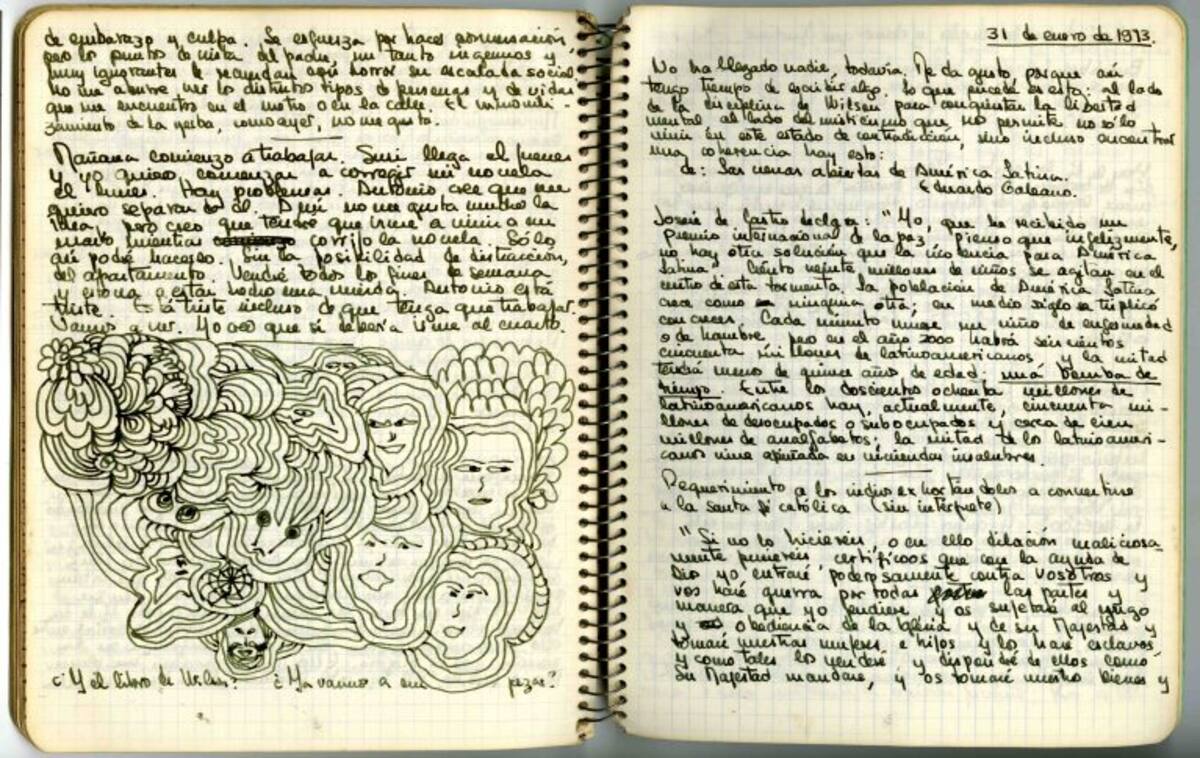 de embarazo y culpa. Se esfuerza por hacer conversación,
pero los puntos de vista del padre, un tanto ingenuos y
muy ignorantes le recuerdan con horror su escalada social
no me aburre ver los distintos tipos de personas y de vidas
que me encuentro en el metro o en la calle. El
zamiento de la yerba, como ayer, no me gusta.
Mañana comienzo a trabajar. Susi llega el jueves
y yo quiero comenzar a corregir mi novela
el lunes. Hay problemas. Antonio cree que me
quiero separar de él. A mí no me gusta mucho la
idea, pero creo que tendré que irme a vivir a un
cuarto mientras corrijo la novela. Sólo
así podré hacerlo. Sin la posibilidad de distracción,
del apartamento. Vendré todos los fines de semana
y ahora a estar todo una mierda. Antonio está
triste. Está triste incluso de que tenga que trabajar.
Vamos a ver. Yo creo que sí debería irme al cuarto.
¿Y el libro de ? ¿Ya vamos a em pezar?
31 de enero de 1973.
No ha llegado nadie, todavía. Me da gusto, porque así
tengo tiempo de escribir algo. Lo que sucede es esto: al lado
de la disciplina de Wilson para conquistar la libertad
mental al lado del misticismo que no permite no sólo
vivir en este estado de contradicción, sino incluso encontrar
una coherencia hay esto:
de: Las venas abiertas de América Latina.
Eduardo Galeano.
Josué de Castro declara: "Yo, que he recibido un
Premio internacional de la paz, pienso que infelizmente,
no hay otra solución que la violencia para América
Latina." Ciento veinte millones de niños se agitan en el
centro de esta tormenta. La población de América Latina
crece como ninguna otra; en medio siglo se triplicó
con creces. Cada minuto muere un niño de enfermedad
o de hambre, pero en el año 2000 habrá seiscientos
cincuenta millones de latinoamericanos, y la mitad
tendrá menos de quince años de edad: una bomba de
tiempo. Entre los doscientos ochenta millones de
latinoamericanos hay, actualmente, cincuenta mi-
llones de desocupados o subocupados y cerca de cien
millones de analfabetos; la mitad de los latinoameri-
canos vive apiñada en viviendas insalubres.
Requerimiento a los indios exhortándolos a convertirse
a la santa fé católica (sin intérprete)
"Si no lo hiciereis, o en ello dilación maliciosa-
mente pusiereis, certifícoos que con la ayuda de
Dios yo entraré poderosamente contra vosotros y
vos haré guerra por todas las partes y
manera que yo pudiere, y os sujetaré al yugo
y obediencia de la Iglesia y de su Majestad y
tomaré vuestras mujeres e hijos y los haré esclavos,
y como tales los venderé, y dispondré de ellos como
Su Majestad mandare, y os tomaré vuestros bienes y